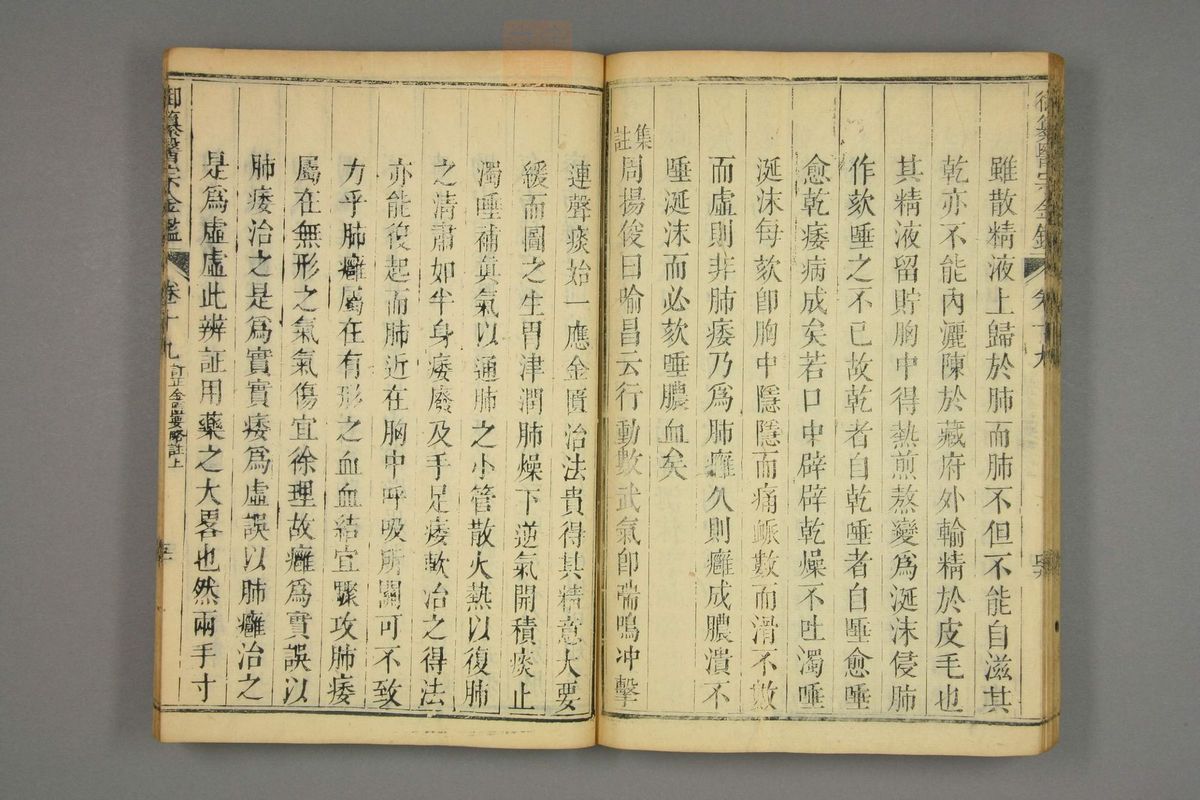 御纂醫宗金鑑
卷十九
雖散精液上歸於肺而肺不但不能自滋其
乾亦不能內灑陳於藏府外輸精於皮毛也
其精液留貯胸中得熱煎熬變爲涎沫侵肺
作欬唾之不已故乾者自乾唾者自唾愈唾
愈乾痿病成矣若口中辟辟乾燥不吐濁唾
涎沫每欬卽胸中隱隱而痛脈數而滑不數
而虛則非肺痿乃爲肺癰久則癰成膿潰不
唾涎沫而必欬唾膿血矣
集註周揚俊曰喻昌云行動數武氣卽喘鳴冲擊
連聲痰始一應金匱治法貴得其精意大要
緩而圖之生胃津潤肺燥下逆氣開積痰止
濁唾補眞氣以通肺之小管散火熱以復肺
之清肅如半身痿廢及手足痿軟治之得法
亦能復起而肺近在胸中呼吸所關可不致
力乎肺癰屬在有形之血血結宜驟攻肺痿
屬在無形之氣氣傷宜徐理故癰爲實誤以
肺痿治之是爲實實痿爲虛誤以肺癰治之
是爲虛虛此辨証用藥之大畧也然兩手寸
御纂醫宗金鑑
卷十九
訂正金匱要略註上